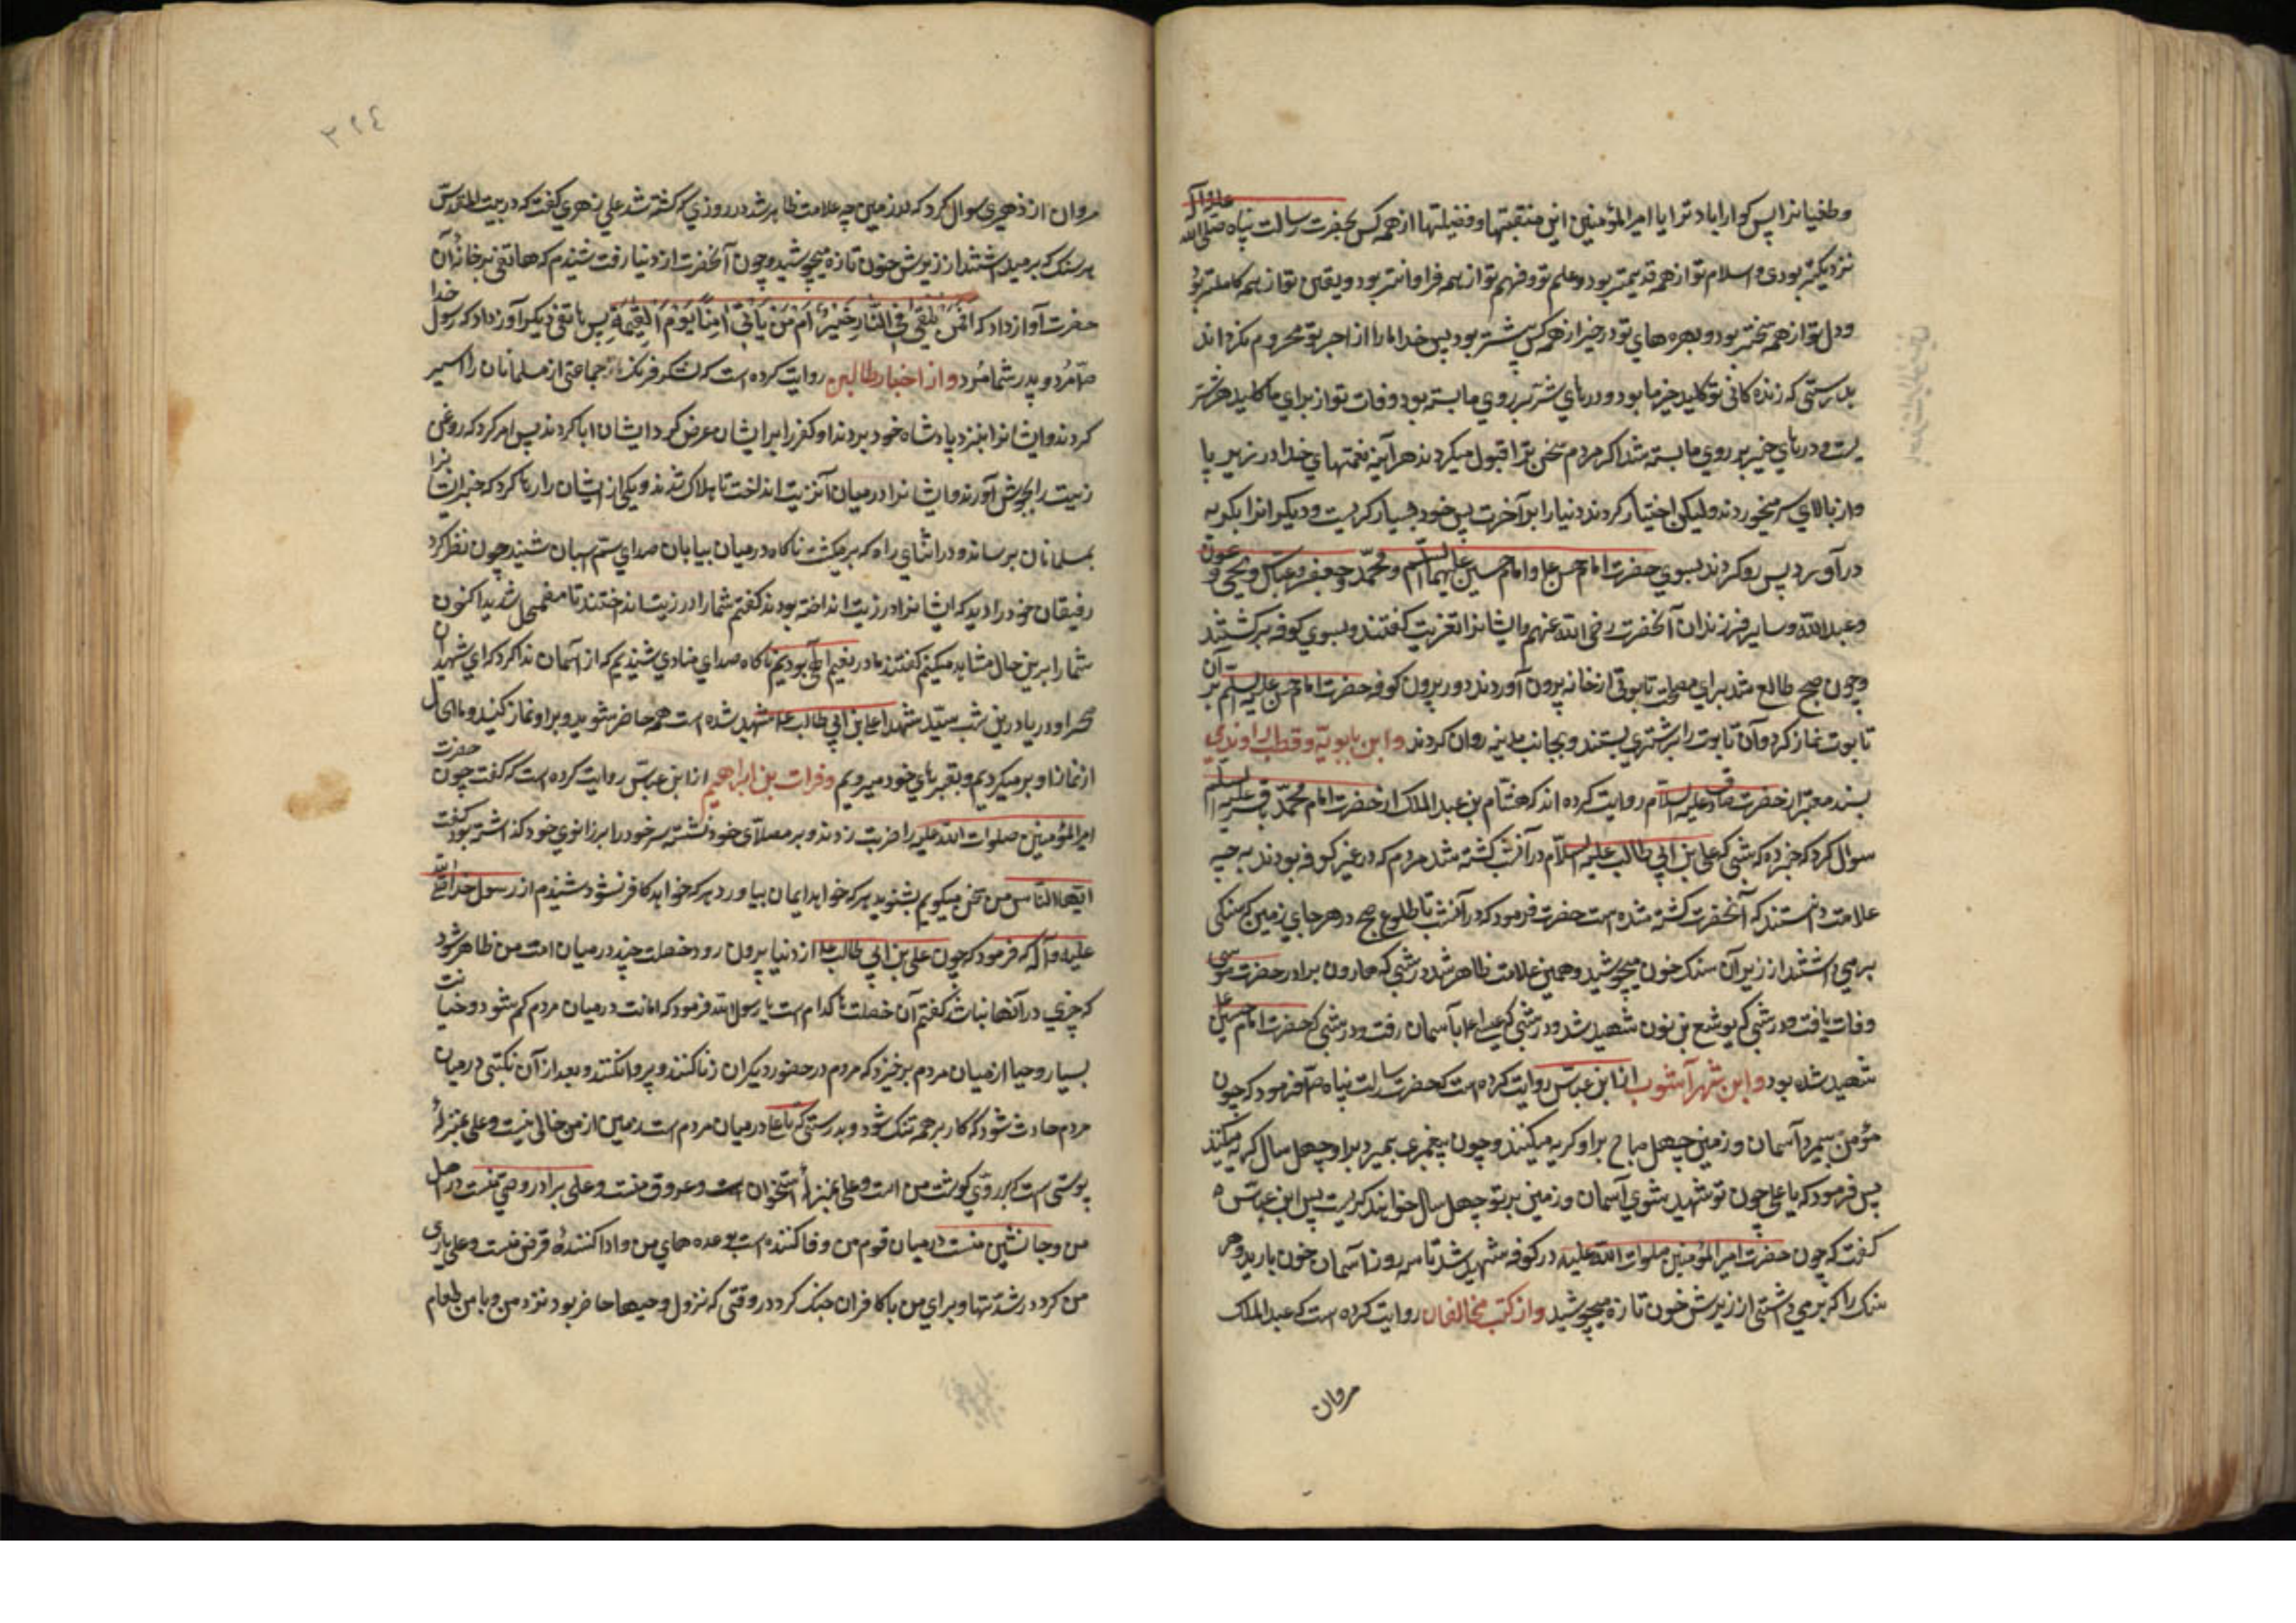 وطغیانرا پس کوارا باد ترا یا امیرالمؤمنین این منقبتها و فضیلتها از همه کس بحضرت رسالت پناه صلی الله علیه و آله
نزدیکتر بودی و اسلام تو از همه قدیمتر بود و علم تو و فهم تو از همه فراوانتر بود و یقین تو از همه کاملتر بود
و دل تو از همه سختتر بود و بهره های تو در خیر از همه کس بیشتر بود پس خدا ما را از اجر تو محروم نکرداند
بدرستی که زنده کانی تو کلید خیر ما بود و درهای شر بر روی ما بسته بود و وفات تو از برای ما کلید هر شر
یست و درهای خیر بر روی ما بسته شد اکر مردم سخن ترا قبول میکردند هر آینه نعمتهای خدا در زیر پا
و از بالای سر میخوردند و لیکن اختیار کردند دنیا را بر آخرت پس خود بسیار کریست و دیکرانرا بکریه
در آورد پس رو کردند بسوی حضرت امام حسن ع و امام حسین علیهما السلم و محمد و جعفر و عباس و یحیی و عون
و عبدالله و سایر فرزندان آنحضرت رضی الله عنهم و ایشانرا تعزیت کفتند و بسوی کوفه برکشتند
و چون صبح طالع شد برای مصلحت تابوتی از خانه بیرون آوردند و در بیرون کوفه حضرت امام حسن علیه السلم بر آن
تابوت نماز کرد و آن تابوت را بر شتری بستند و بجانب مدینه روان کردند و ابن بابویه و قطب راوندی
بسند معتبر از حضرت صادق علیه السلام روایت کرده اند که هشام بن عبد الملک از حضرت امام محمد باقر علیه السلم
سوال کرد که خبر ده که شبی که علی بن ابی طالب علیه السلام در آنشب کشته شد مردم که در غیر کوفه بودند به چه
علامت دانستند که آنحضرت کشته شده است حضرت فرمود که در آنشب تا طلوع صبح در هر جای زمین که سنکی
برمیداشتند از زیر آن سنک خون میجوشید و همین علامت ظاهر شد در شبی که هارون برادر حضرت موسی
وفات یافت و در شبی که یوشع بن نون شهید شد و در شبی که عیسی ع بآسمان رفت و در شبی که حضرت امام حسین ع
شهید شده بود و ابن شهر آشوب از ابن عباس روایت کرده است که حضرت رسالت پناه ص فرمود که چون
مؤمن بمیرد آسمان و زمین چهل صباح بر او کریه میکنند و چون پیغمبری بمیرد بر او چهل سال کریه میکنند
پس فرمود که یا علی چون تو شهید شوی آسمان و زمین بر تو چهل سال خواهند کریست پس ابن عباس
کفت که چون حضرت امیرالمؤمنین صلوات الله علیه در کوفه شهید شد تا سه روز از آسمان خون بارید و هر
سنک را که برمیداشتی از زیرش خون تازه میجوشید و از کتب مخالفان روایت کرده است که عبد الملک
مروان
٣٢٤
مروان از زهری سوال کرد که در زمین چه علامت ظاهر شد در روزی که کشته شد علی زهری کفت که در بیت المقدس
هر سنک که برمیداشتند از زیرش خون تازه میجوشید و چون آنحضرت از دنیا رفت شنیدم که هاتفی بر خانۀ آن
حضرت آواز داد که افمن یلقی فی النار خیر ام من یاتی امنا یوم القیمة پس هاتفی دیکر آواز داد که رسول خدا
ص مرد و پدر شما مرد و از اخبار طالبین روایت کرده است که لشکر فرنک جماعتی از مسلمانان را اسیر
کردند و ایشانرا بنزد پادشاه خود بردند او کفر را بر ایشان عرض کرد ایشان ابا کردند پس امر کرد که روغن
زیت را بجوش آورند و ایشانرا در میان آن زیت انداخت تا هلاک شدند و یکی از ایشان را رها کرد که خبر ایشانرا
بمسلمانان برساند و در اثنای راه که برمیکشت ناکاه در میان بیابان صدای سم اسبان شنید چون نظر کرد
رفیقان خود را دید که ایشانرا در زیت انداخته بودند کفتم شما را در زیت انداختند تا مضمحل شدید اکنون
شما را برین حال مشاهده میکنم کفتند ما در نعیم الهی بودیم ناکاه صدای منادی شنیدیم که از آسمان ندا کرد که ای شهیدان
صحرا و دریا درین شب سید شهدا علی بن ابی طالب ع شهید شده است همه حاضر شوید و بر او نماز کنید و ما الحال
از نماز او برمیکردیم و بقبرهای خود میرویم و فرات بن ابراهیم از ابن عباس روایت کرده است که کفت چون حضرت
امیرالمؤمنین صلوات الله علیه را ضربت زدند و بر مصلای خود نشسته سر خود را بر زانوی خود کذاشته بود کفت
ایها الناس من سخن میکویم بشنوید هر که خواهد ایمان بیاورد هر که خواهد کافر شود شنیدم از رسول خدا صلی الله
علیه و آله که فرمود که چون علی بن ابی طالب ع از دنیا بیرون رود خصلت چند در میان امت من ظاهر شود
که خیری در آنها نباشد کفتم آن خصلت ها کدام است یا رسول الله فرمود که امانت در میان مردم کم شود و خیانت
بسیار و حیا از میان مردم برخیزد که مردم در حضور دیکران زنا کنند و پروا نکنند و بعد از آن نکبتی در میان
مردم حادث شود که کار بر همه تنک شود و بدرستی که تا علی در میان مردم است زمین از من خالی نیست و علی بمنزلۀ
پوستی است که بر روی کوشت من است و علی بمنزلۀ استخوان است و عروق منست و علی برادر و وصی منست در اهل
من و جانشین منست در میان قوم من و وفا کننده است بوعده های من و ادا کنندۀ قرض منست و علی یاری
من کرد در شدتها و برای من با کافران جنک کرد در وقتی که نزول وحیها حاضر بود نزد من و با من طعام